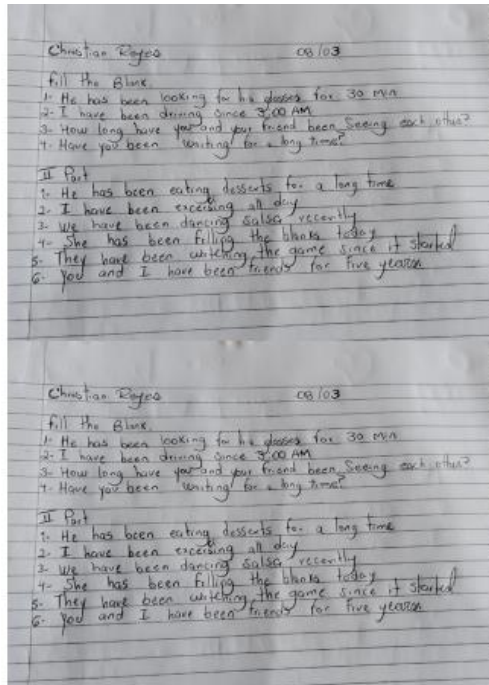 Christian Reyes 08/03
Fill the Blank.
1- He has been looking for his glasses for 30 min
2- I have been driving since 3:00 AM
3- How long have you and your friend been Seeing each other?
4- Have you been waiting for a long time?
II Part
1- He has been eating desserts for a long time
2- I have been excersing all day
3- We have been dancing salsa recently
4- She has been filling the blanks today
5- They have been watching the game since it started
6- you and I have been friends for five years
Christian Reyes 08/03
Fill the Blank.
1- He has been looking for his glasses for 30 min
2- I have been driving since 3:00 AM
3- How long have you and your friend been Seeing each other?
4- Have you been waiting for a long time?
II Part
1- He has been eating desserts for a long time
2- I have been excersing all day
3- We have been dancing salsa recently
4- She has been filling the blanks today
5- They have been watching the game since it started
6- you and I have been friends for five years